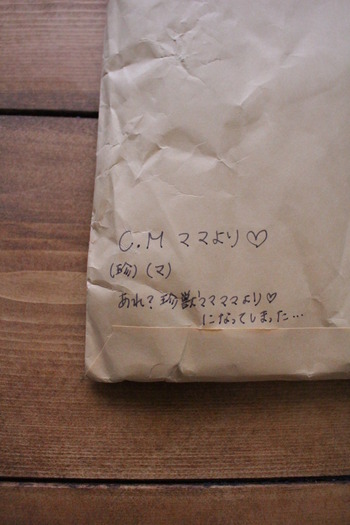 C.M ママより♡
(珍) (マ)
あれ？珍獣ママママより♡
になってしまった…